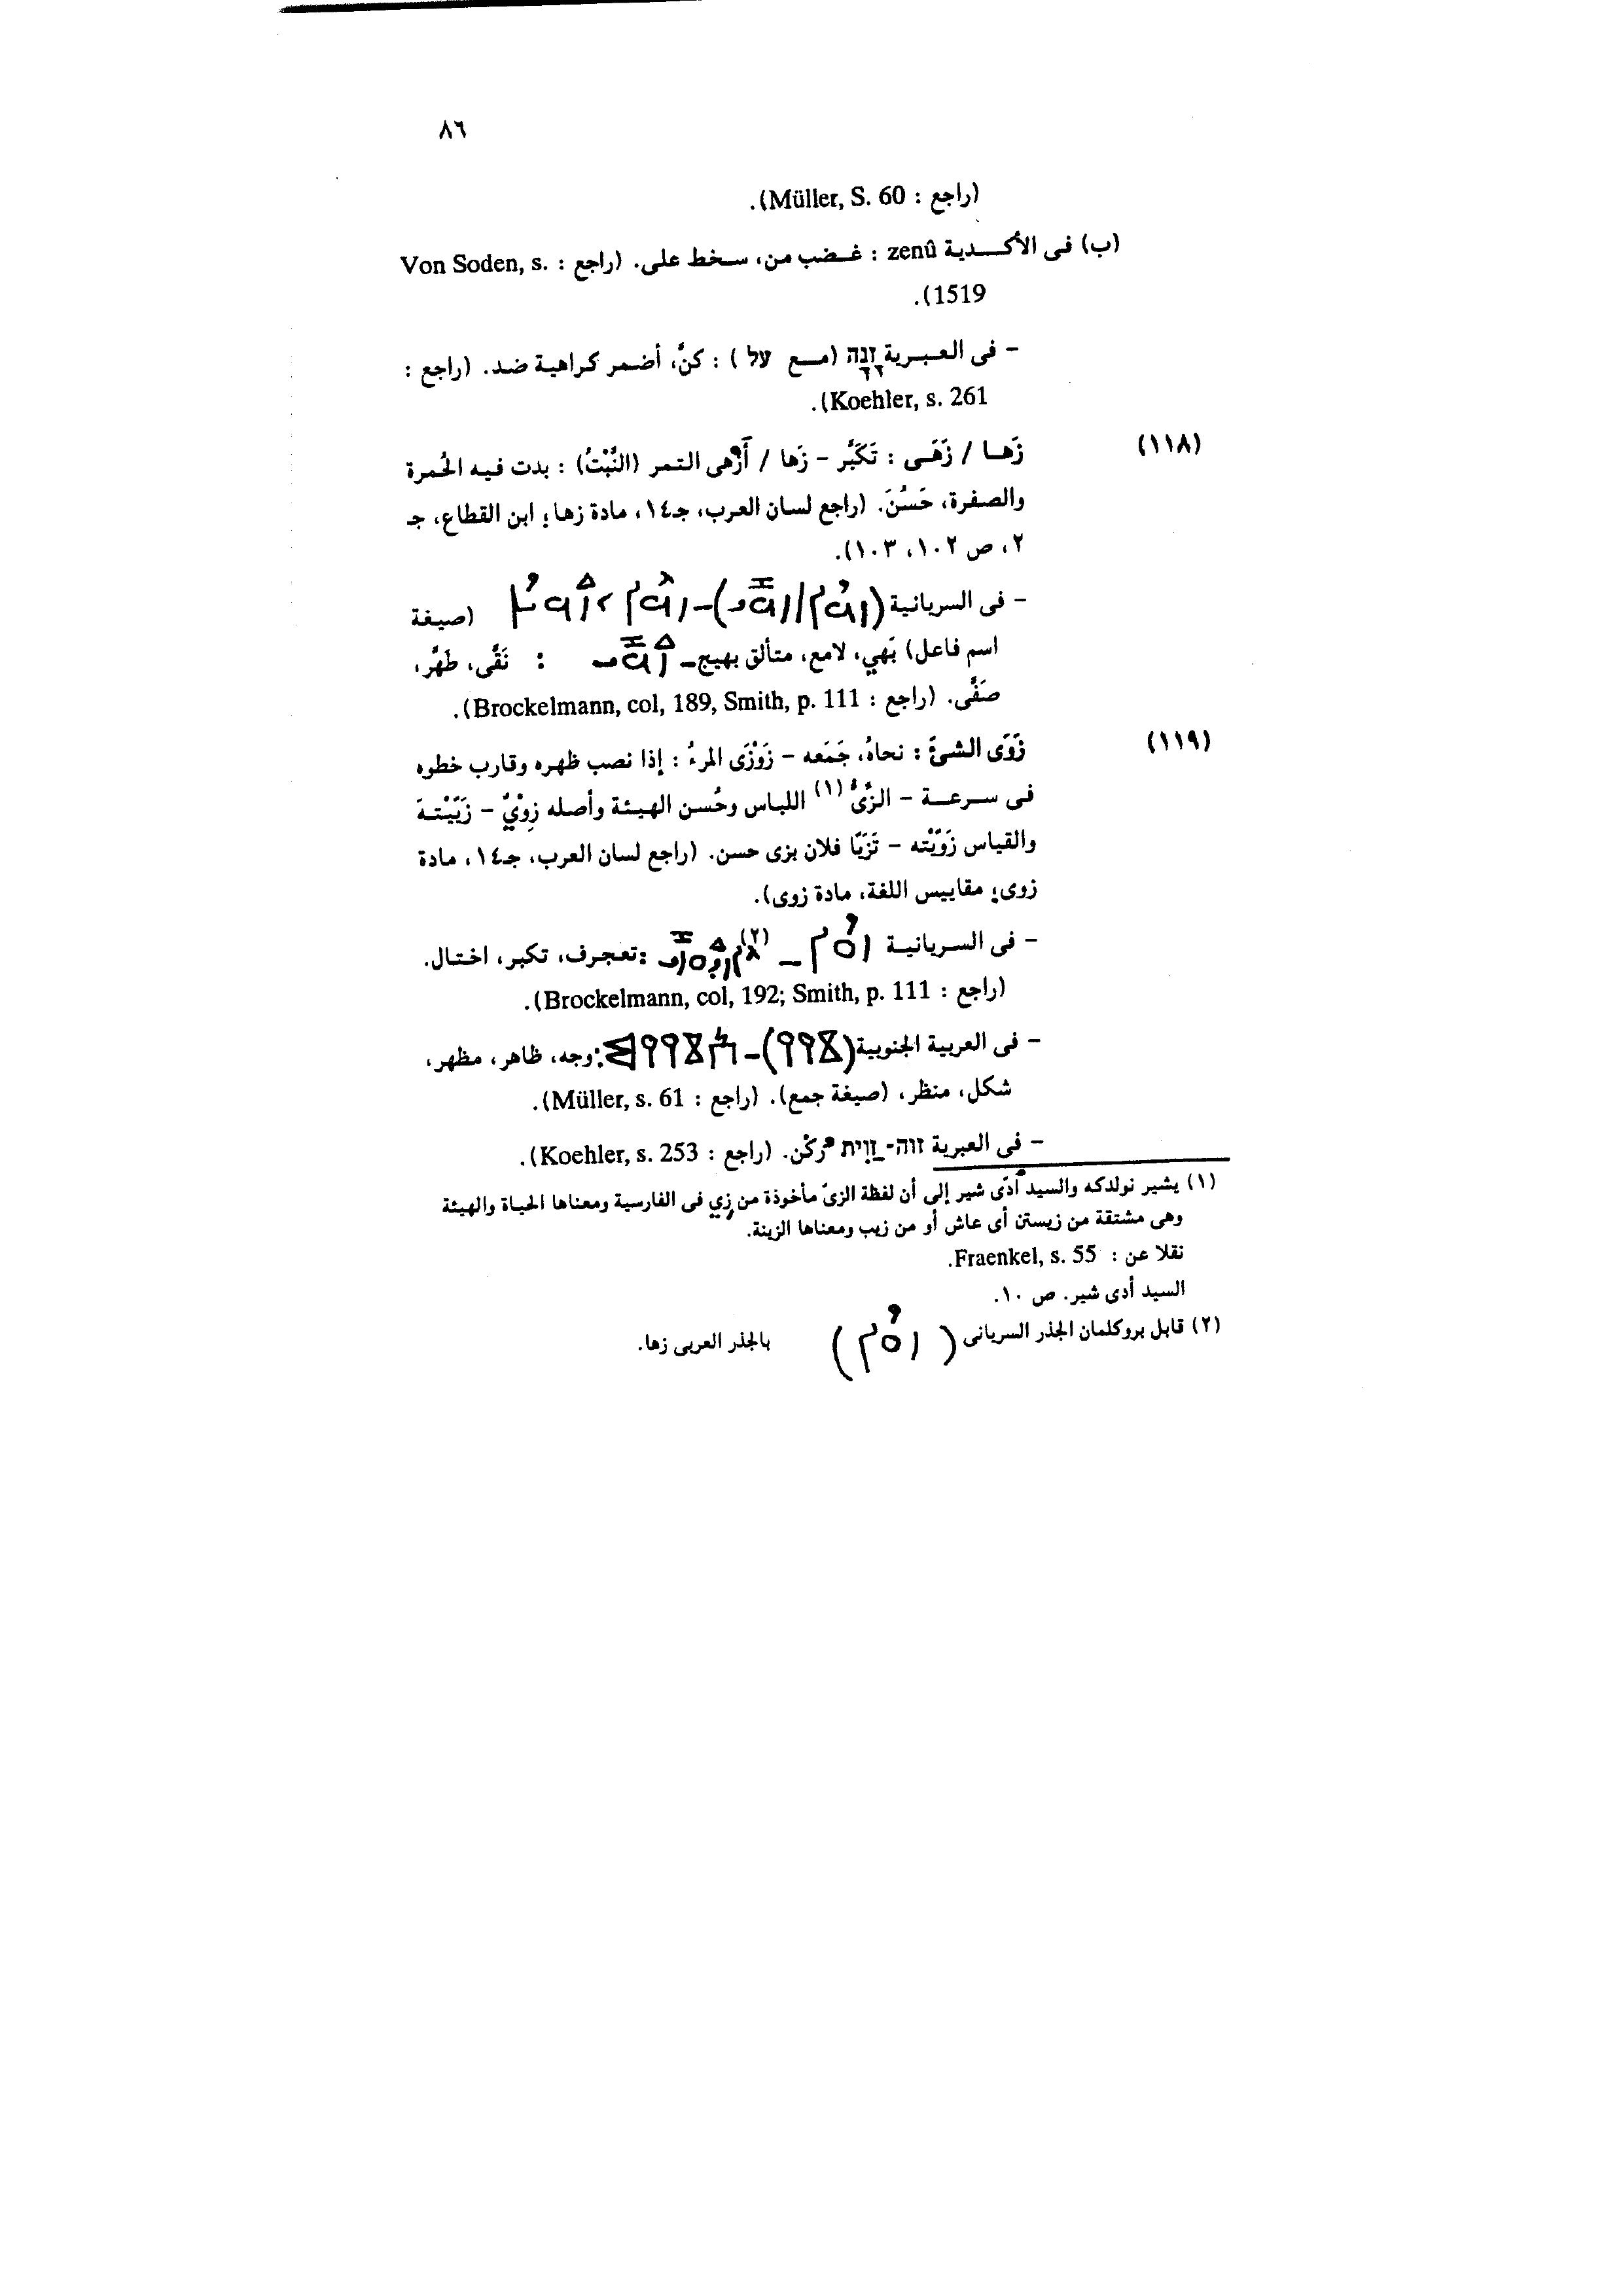 ٨٦
(راجع : Müller, S. 60).
(ب) فى الأكدية zenû : غضب من، سخط على. (راجع : Von Soden, s.
1519).
- فى العبرية זנה (مع על) : كنَّ، أضمر كراهية ضد. (راجع :
Koehler, s. 261).
(١١٨) زَها / زَهَى : تَكَبَّر - زَها / أَزْهى التمر (النَّبْتُ) : بدت فيه الحُمرة
والصفرة، حَسُنَ. (راجع لسان العرب، جـ١٤، مادة زها؛ ابن القطاع، جـ
٢، ص ١٠٢، ١٠٣).
- فى السريانية (صيغة
اسم فاعل) بَهي، لامع، متألق بهيج - : نَقَّى، طَهَّر،
صَفَّى. (راجع : Brockelmann, col, 189, Smith, p. 111).
(١١٩) زَوَى الشئَ : نحاهُ، جَمَعه - زَوْزَى المرءُ : إذا نصب ظهره وقارب خطوه
فى سرعة - الزِّىُّ (١) اللباس وحُسن الهيئة وأصله زِوْيٌ - زَيَّيْتـهَ
والقياس زَوَيْته - تَزَيّا فلان بزى حسن. (راجع لسان العرب، جـ١٤، مادة
زوى؛ مقاييس اللغة، مادة زوى).
- فى السريانية (٢) : تعجرف، تكبر، اختال.
(راجع : Brockelmann, col, 192; Smith, p. 111).
- فى العربية الجنوبية : وجه، ظاهر، مظهر،
شكل، منظر، (صيغة جمع). (راجع : Müller, s. 61).
- فى العبرية זוה - זוית ركْن. (راجع : Koehler, s. 253).
(١) يشير نولدكه والسيد أدّى شير إلى أن لفظة الزىّ مأخوذة من زِي فى الفارسية ومعناها الحياة والهيئة
وهى مشتقة من زيستن أى عاش أو من زيب ومعناها الزينة.
نقلا عن : Fraenkel, s. 55.
السيد أدى شير. ص ١٠.
(٢) قابل بروكلمان الجذر السريانى ( ) بالجذر العربى زها.